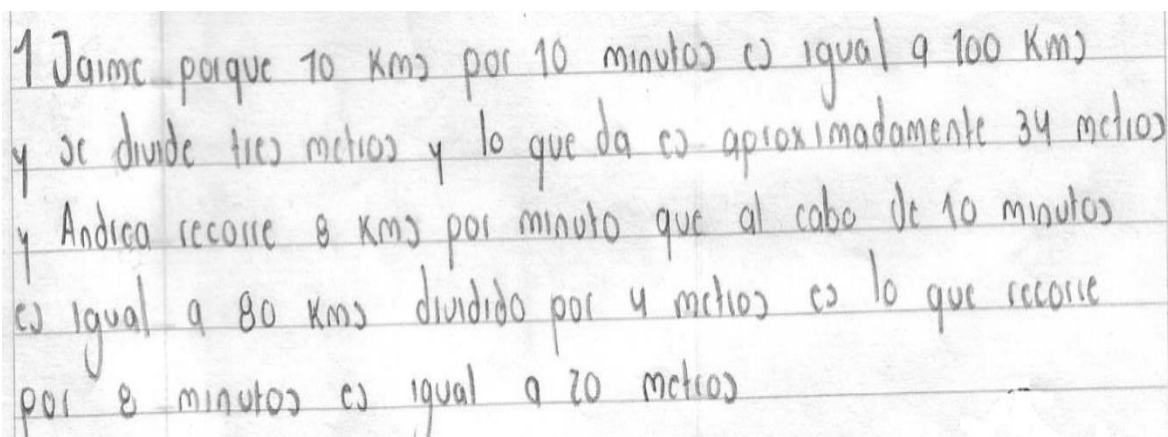 1 Jaime porque 10 Kms por 10 minutos es igual a 100 Kms
y se divide tres metros y lo que da es aproximadamente 34 metros
y Andrea recorre 8 Kms por minuto que al cabo de 10 minutos
es igual a 80 Kms dividido por 4 metros es lo que recorre
por 8 minutos es igual a 20 metros